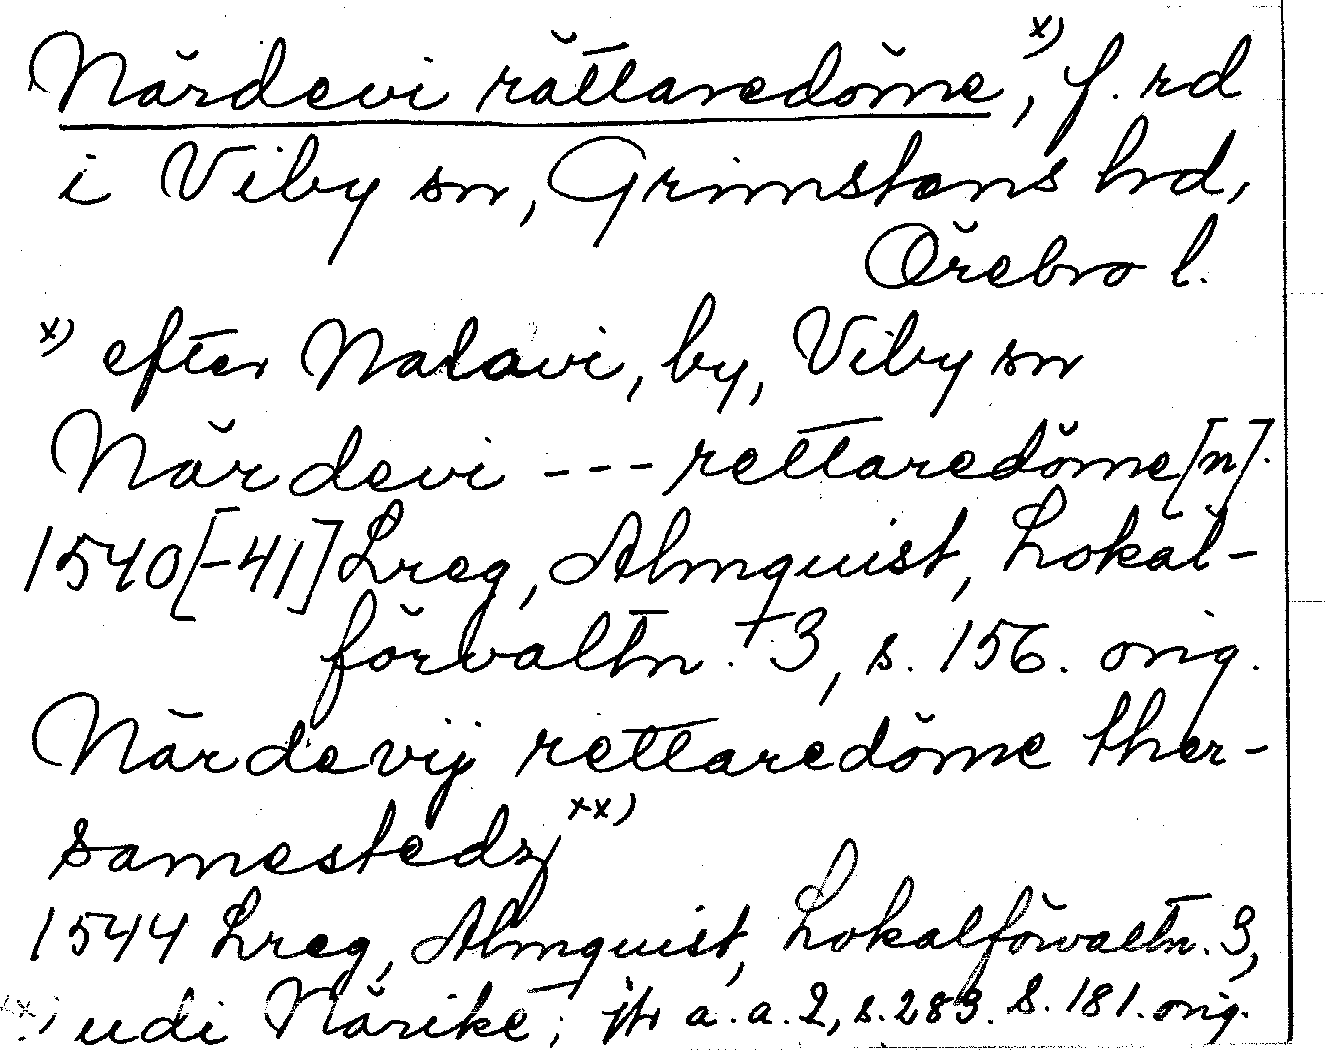 Närdevi rättaredöme x), f. rd
i Viby sn, Grimstens hrd,
Örebro l.
x) efter Nalavi, by, Viby sn
Närdevi --- rettaredöme[n].
1540[-41] Lreg, Almquist, Lokal-
förvaltn. 3, s. 156. orig.
Närdevij rettaredöme ther-
samestedz xx)
1544 Lreg, Almquist, Lokalförvaltn. 3,
xx) udi Närike; jfr a.a. 2, s. 283. s. 181. orig.